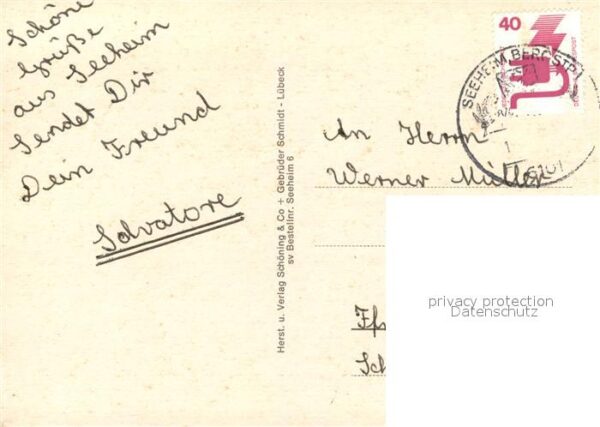 Schöne
Grüße
aus Seeheim
sendet Dir
Dein Freund
Salvatore
Herst. u. Verlag Schöning & Co + Gebrüder Schmidt - Lübeck
sv Bestellnr. Seeheim 6
40
SEEHEIM, BERGSTR.
1
6101
An Herrn
Werner Müller
privacy protection
Datenschutz